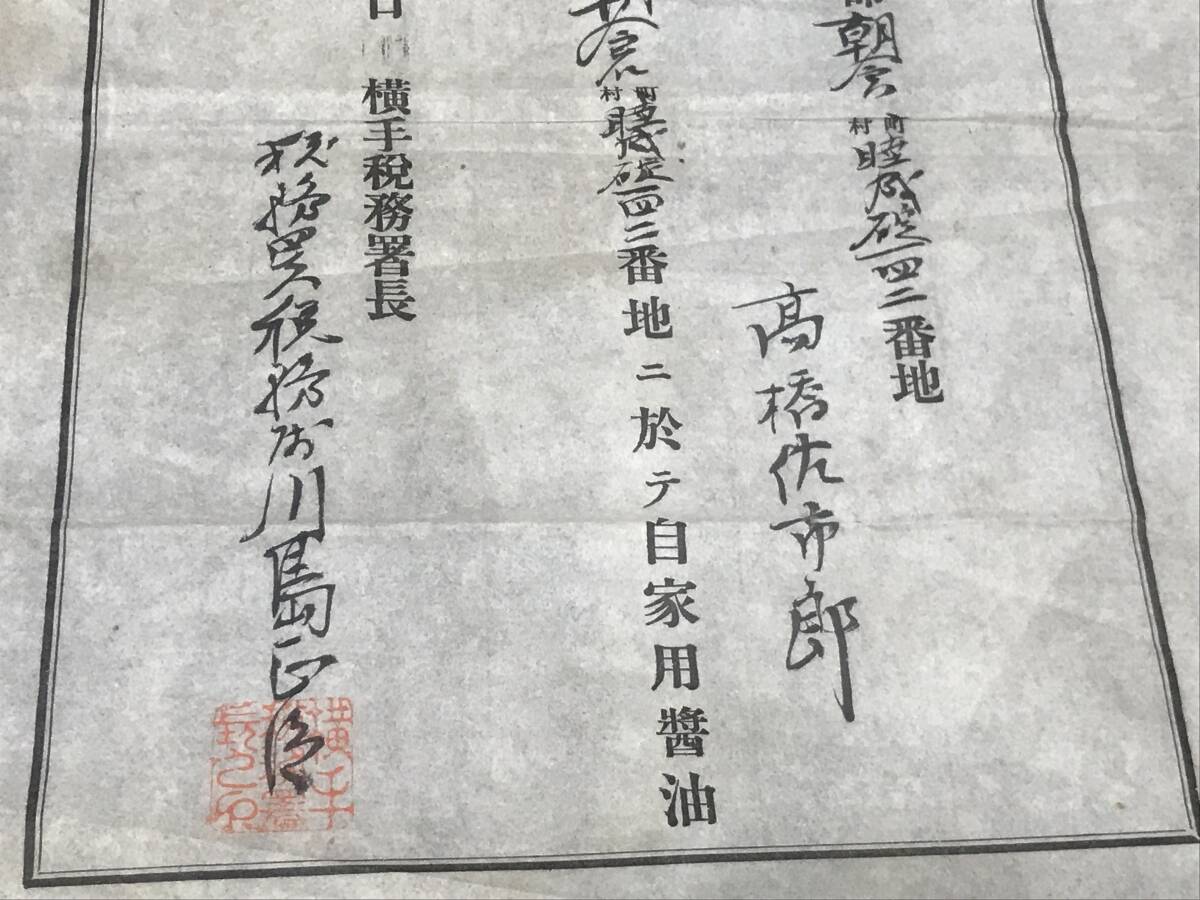 朝倉村町睦成碇一四二番地
高橋佐市郎
朝倉村町睦成碇一四二番地ニ於テ自家用醬油
日
横手税務署長
税務署税務属川島正
横手税務署長之印